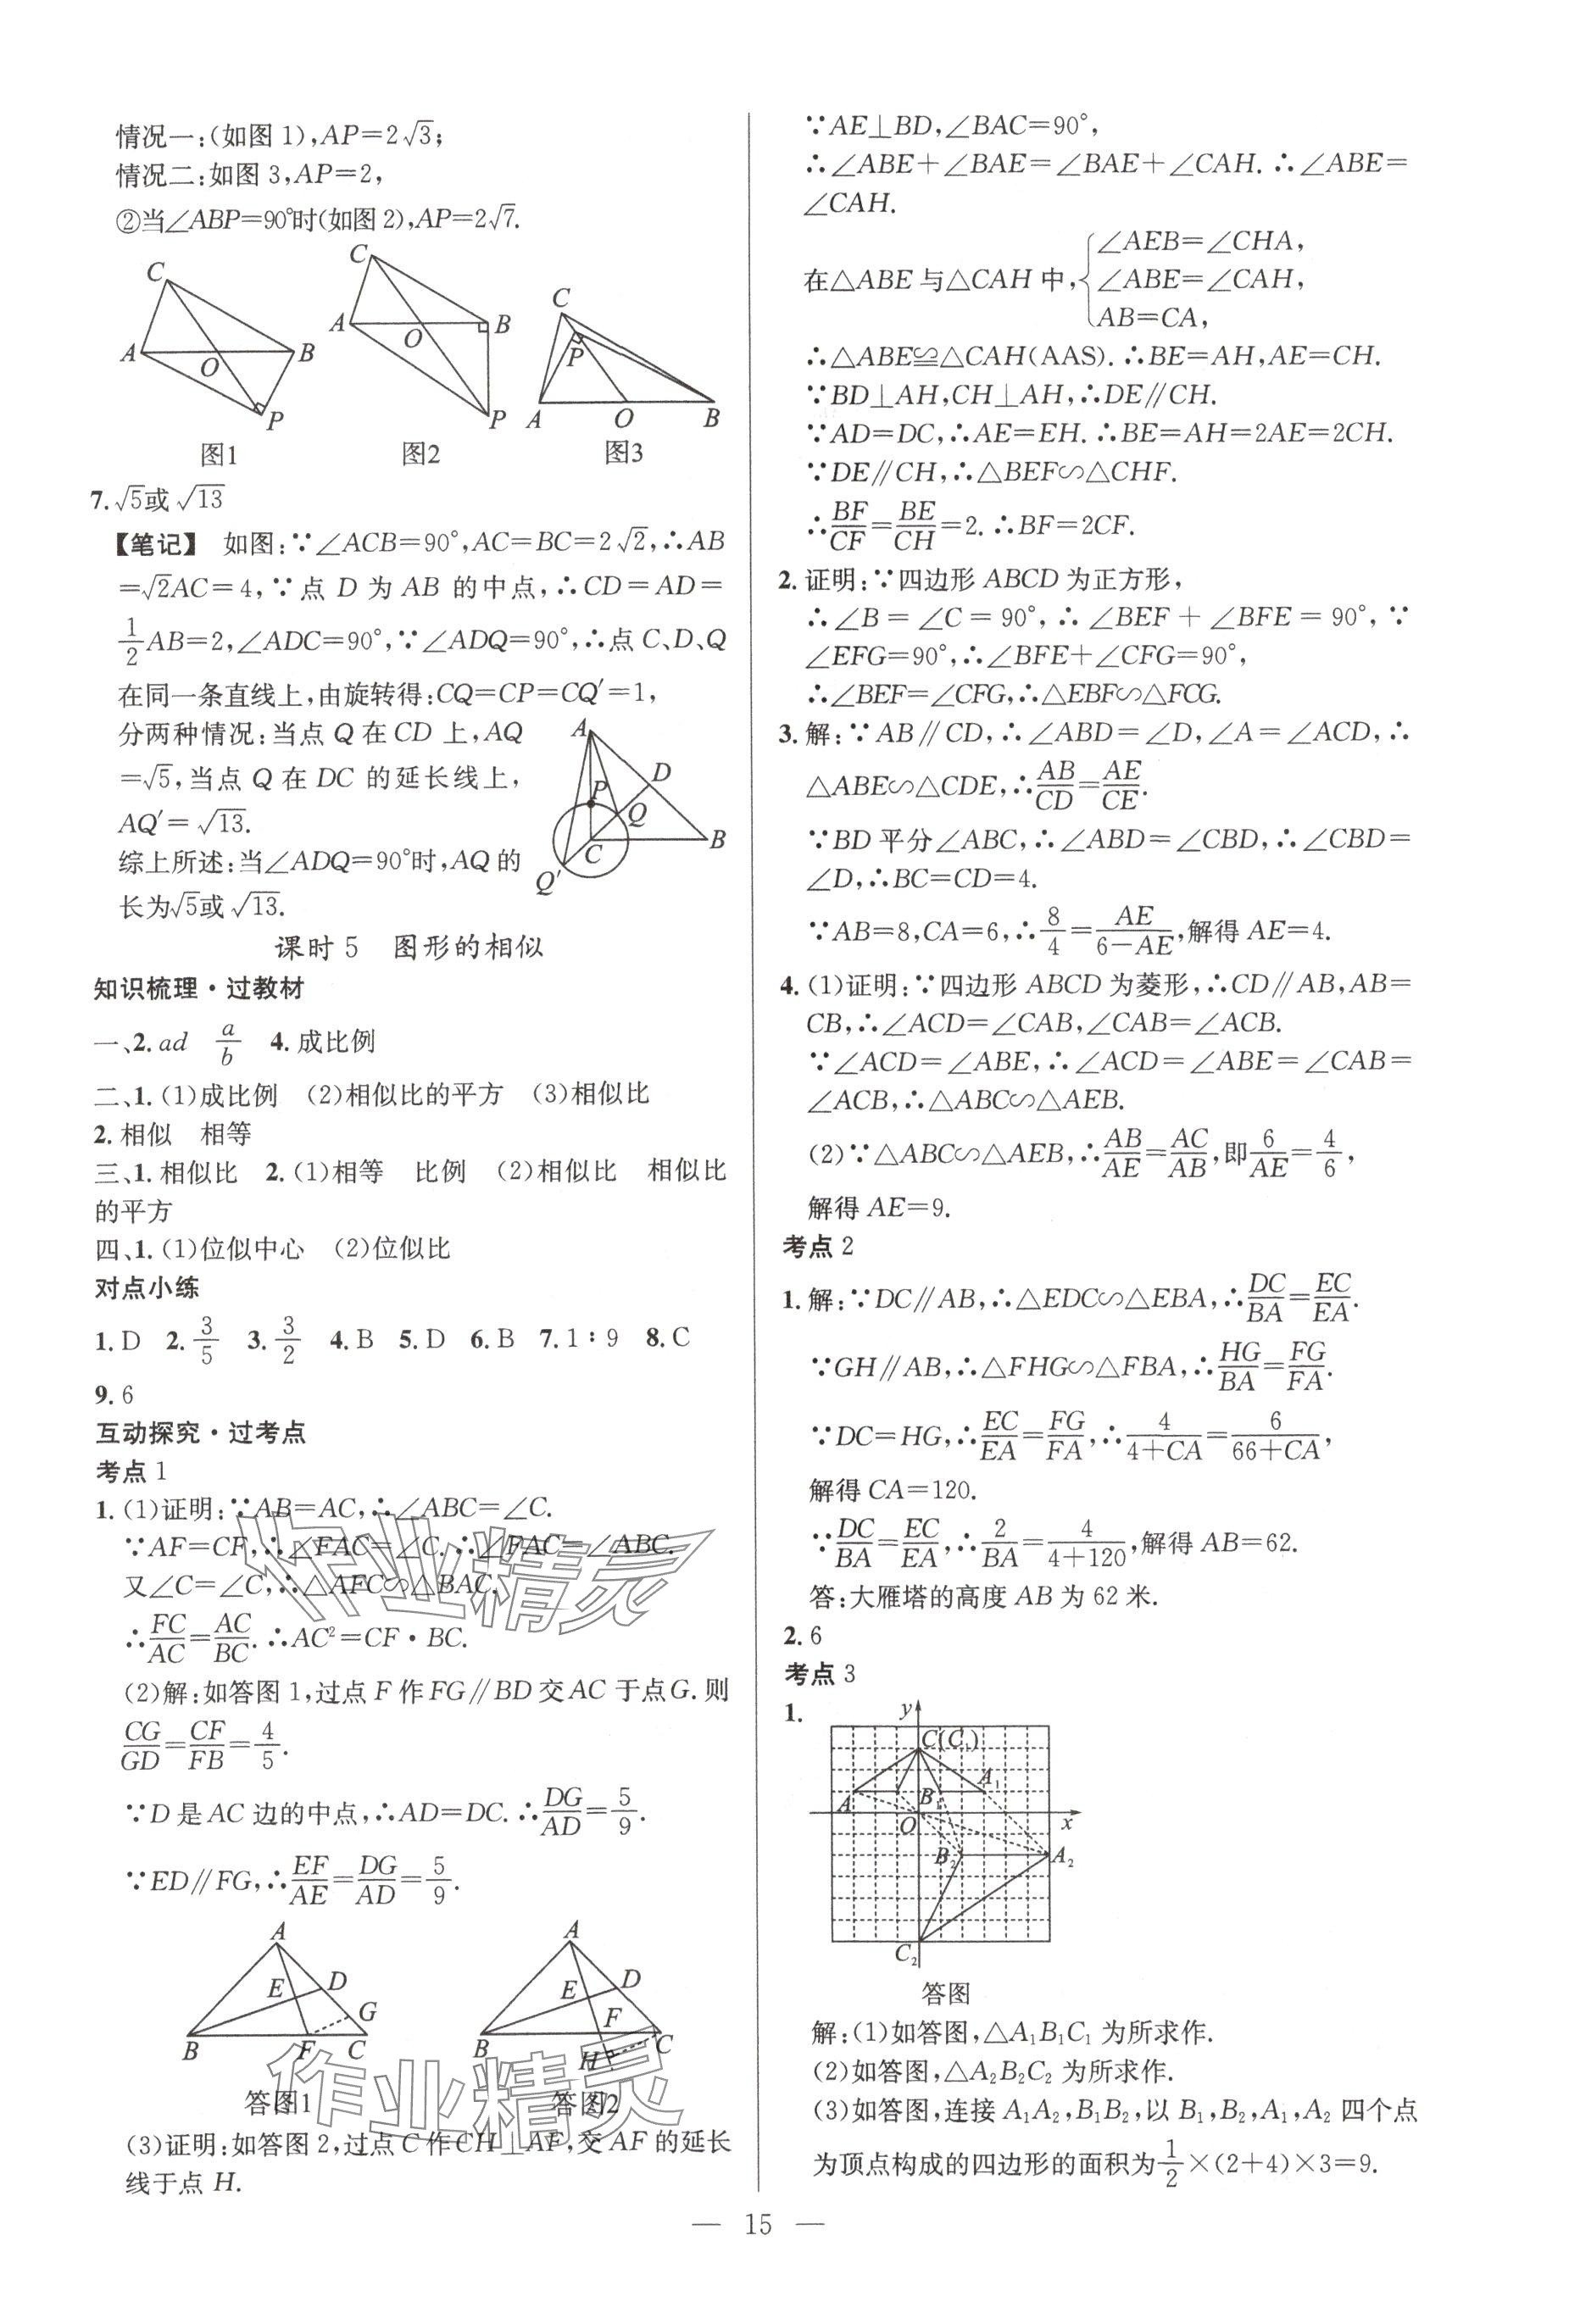 情况一:(如图1),AP=2√3;
情况二:如图3,AP=2,
②当∠ABP=90°时(如图2),AP=2√7.
C
A
O
B
P
图1
C
A
O
B
P
图2
C
P
A
O
B
图3
7.√5或√13
【笔记】 如图:∵∠ACB=90°,AC=BC=2√2,∴AB
=√2AC=4,∵点 D 为 AB 的中点,∴CD=AD=
1/2 AB=2,∠ADC=90°,∵∠ADQ=90°,∴点C、D、Q
在同一条直线上,由旋转得:CQ=CP=CQ′=1,
分两种情况:当点Q在CD上,AQ
=√5,当点 Q 在 DC 的延长线上,
AQ′=√13.
综上所述:当∠ADQ=90°时,AQ的
长为√5或√13.
A
D
P
Q
B
C
Q′
课时5 图形的相似
知识梳理·过教材
一、2. ad a/b 4. 成比例
二、1. (1)成比例 (2)相似比的平方 (3)相似比
2. 相似 相等
三、1. 相似比 2. (1)相等 比例 (2)相似比 相似比
的平方
四、1. (1)位似中心 (2)位似比
对点小练
1. D 2. 3/5 3. 3/2 4. B 5. D 6. B 7. 1∶9 8. C
9. 6
互动探究·过考点
考点1
1. (1)证明:∵AB=AC,∴∠ABC=∠C.
∵AF=CF,∴∠FAC=∠C.∴∠FAC=∠ABC.
又∠C=∠C,∴△AFC∽△BAC.
∴FC/AC=AC/BC.∴AC²=CF·BC.
(2)解:如答图1,过点F作FG∥BD交AC于点G.则
CG/GD=CF/FB=4/5.
∵D是AC边的中点,∴AD=DC.∴DG/AD=5/9.
∵ED∥FG,∴EF/AE=DG/AD=5/9.
A
D
E
G
B
F
C
答图1
A
D
E
F
B
C
H
答图2
(3)证明:如答图2,过点C作CH⊥AF,交AF的延长
线于点 H.
∵AE⊥BD,∠BAC=90°,
∴∠ABE+∠BAE=∠BAE+∠CAH. ∴∠ABE=
∠CAH.
在△ABE与△CAH中,{∠AEB=∠CHA,
∠ABE=∠CAH,
AB=CA,
∴△ABE≌△CAH(AAS). ∴BE=AH,AE=CH.
∵BD⊥AH,CH⊥AH,∴DE∥CH.
∵AD=DC,∴AE=EH. ∴BE=AH=2AE=2CH.
∵DE∥CH,∴△BEF∽△CHF.
∴BF/CF=BE/CH=2. ∴BF=2CF.
2. 证明:∵四边形 ABCD 为正方形,
∴∠B=∠C=90°,∴∠BEF+∠BFE=90°,∵
∠EFG=90°,∴∠BFE+∠CFG=90°,
∴∠BEF=∠CFG,∴△EBF∽△FCG.
3. 解:∵AB∥CD,∴∠ABD=∠D,∠A=∠ACD,∴
△ABE∽△CDE,∴AB/CD=AE/CE.
∵BD平分∠ABC,∴∠ABD=∠CBD,∴∠CBD=
∠D,∴BC=CD=4.
∵AB=8,CA=6,∴8/4=AE/(6-AE),解得AE=4.
4. (1)证明:∵四边形 ABCD 为菱形,∴CD∥AB,AB=
CB,∴∠ACD=∠CAB,∠CAB=∠ACB.
∵∠ACD=∠ABE,∴∠ACD=∠ABE=∠CAB=
∠ACB,∴△ABC∽△AEB.
(2)∵△ABC∽△AEB,∴AB/AE=AC/AB,即6/AE=4/6,
解得AE=9.
考点2
1. 解:∵DC∥AB,∴△EDC∽△EBA,∴DC/BA=EC/EA.
∵GH∥AB,∴△FHG∽△FBA,∴HG/BA=FG/FA.
∵DC=HG,∴EC/EA=FG/FA,∴4/(4+CA)=6/(66+CA),
解得CA=120.
∵DC/BA=EC/EA,∴2/BA=4/(4+120),解得AB=62.
答:大雁塔的高度AB为62米.
2. 6
考点3
1.
y
C(C₁)
A₁
A
B₁
O
x
B₂
A₂
C₂
答图
解:(1)如答图,△A₁B₁C₁为所求作.
(2)如答图,△A₂B₂C₂为所求作.
(3)如答图,连接A₁A₂,B₁B₂,以B₁,B₂,A₁,A₂四个点
为顶点构成的四边形的面积为1/2×(2+4)×3=9.
作业精灵
作业精灵
— 15 —